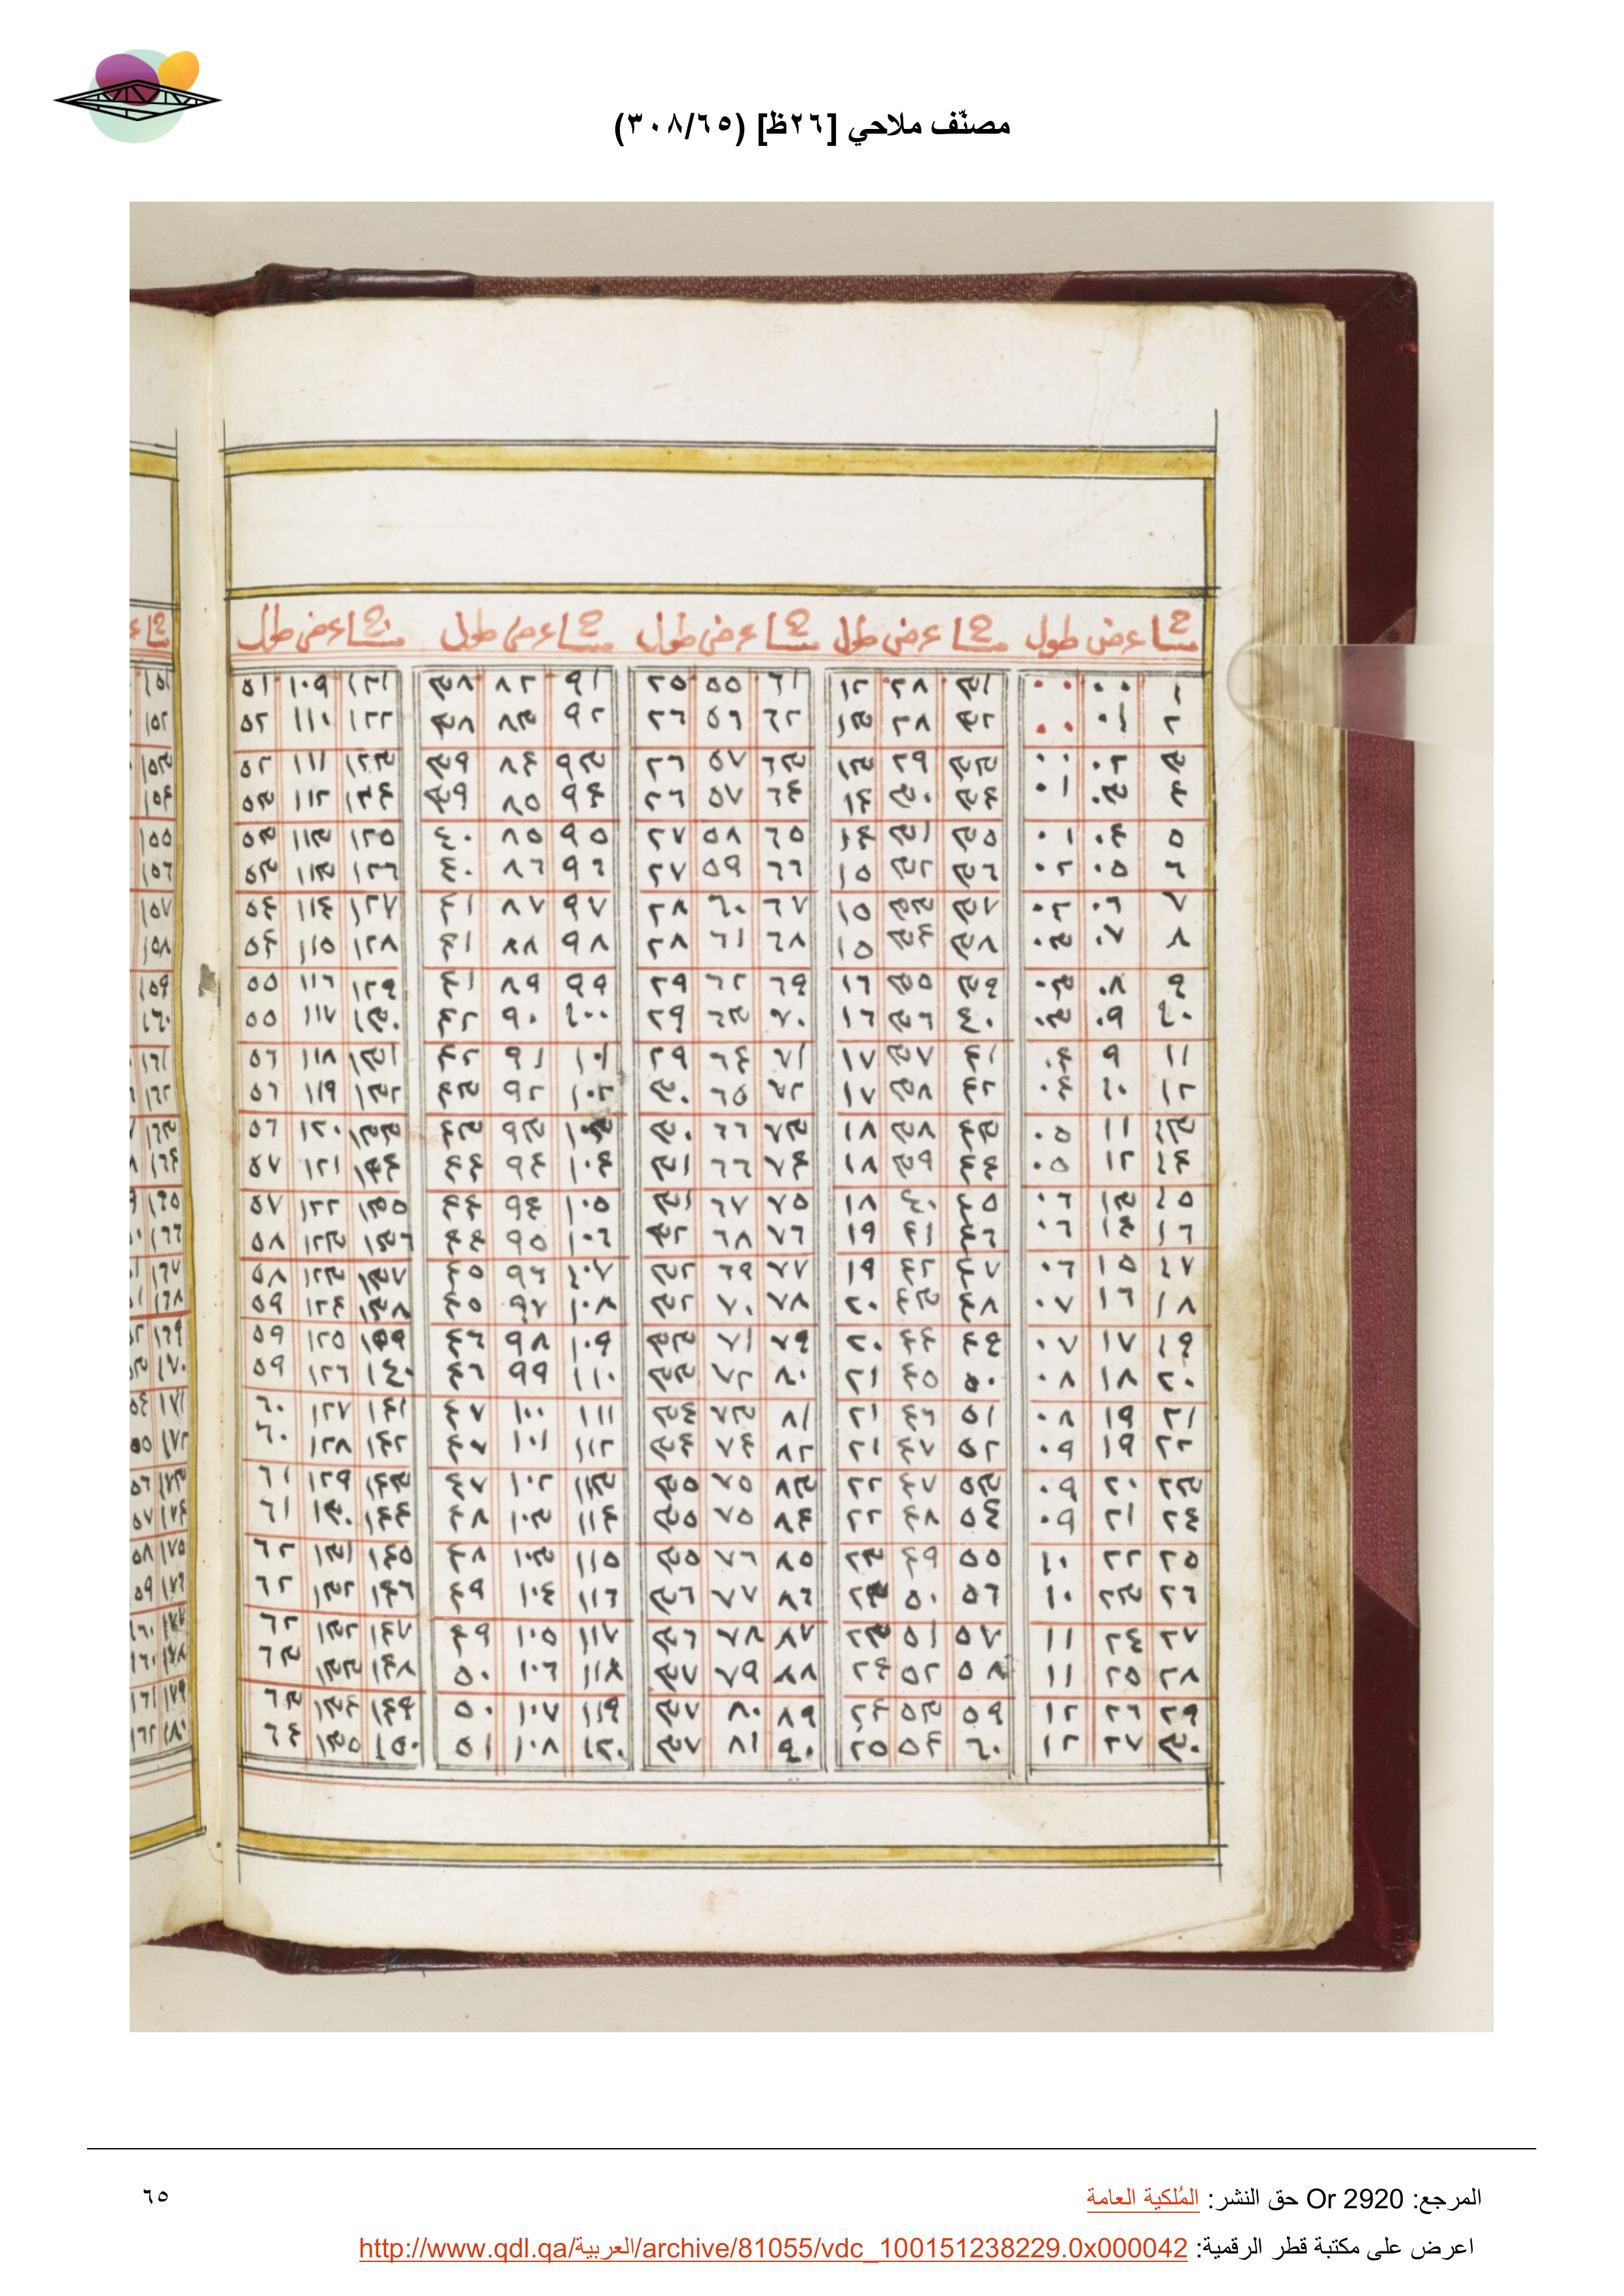 مصنّف ملاحي [٢٦ظ] (٣٠٨/٦٥)
مساح عرض طول مساح عرض طول مساح عرض طول مساح عرض طول مساح عرض طول
١ ٠٠ ٠٠ ٣١ ٢٨ ١٢ ٦١ ٥٥ ٢٥ ٩١ ٨٢ ٣٨ ١٢١ ١٠٩ ٥١
٢ ٠١ ٠٠ ٣٢ ٢٨ ١٣ ٦٢ ٥٦ ٢٦ ٩٢ ٨٣ ٣٨ ١٢٢ ١١٠ ٥٢
٣ ٠٢ ٠٠ ٣٣ ٢٩ ١٣ ٦٣ ٥٧ ٢٦ ٩٣ ٨٤ ٣٩ ١٢٣ ١١١ ٥٢
٤ ٠٣ ٠١ ٣٤ ٣٠ ١٤ ٦٤ ٥٧ ٢٦ ٩٤ ٨٥ ٣٩ ١٢٤ ١١٢ ٥٣
٥ ٠٤ ٠١ ٣٥ ٣١ ١٤ ٦٥ ٥٨ ٢٧ ٩٥ ٨٥ ٤٠ ١٢٥ ١١٣ ٥٣
٦ ٠٥ ٠٢ ٣٦ ٣٢ ١٥ ٦٦ ٥٩ ٢٧ ٩٦ ٨٦ ٤٠ ١٢٦ ١١٣ ٥٣
٧ ٠٦ ٠٢ ٣٧ ٣٣ ١٥ ٦٧ ٦٠ ٢٨ ٩٧ ٨٧ ٤١ ١٢٧ ١١٤ ٥٤
٨ ٠٧ ٠٣ ٣٨ ٣٤ ١٥ ٦٨ ٦١ ٢٨ ٩٨ ٨٨ ٤١ ١٢٨ ١١٥ ٥٤
٩ ٠٨ ٠٣ ٣٩ ٣٥ ١٦ ٦٩ ٦٢ ٢٩ ٩٩ ٨٩ ٤١ ١٢٩ ١١٦ ٥٥
١٠ ٠٩ ٠٣ ٤٠ ٣٦ ١٦ ٧٠ ٦٣ ٢٩ ١٠٠ ٩٠ ٤٢ ١٣٠ ١١٧ ٥٥
١١ ٩ ٠٤ ٤١ ٣٧ ١٧ ٧١ ٦٤ ٢٩ ١٠١ ٩١ ٤٢ ١٣١ ١١٨ ٥٦
١٢ ١٠ ٠٤ ٤٢ ٣٨ ١٧ ٧٢ ٦٥ ٣٠ ١٠٢ ٩٢ ٤٣ ١٣٢ ١١٩ ٥٦
١٣ ١١ ٠٥ ٤٣ ٣٨ ١٨ ٧٣ ٦٦ ٣٠ ١٠٣ ٩٣ ٤٣ ١٣٣ ١٢٠ ٥٦
١٤ ١٢ ٠٥ ٤٤ ٣٩ ١٨ ٧٤ ٦٦ ٣١ ١٠٤ ٩٤ ٤٤ ١٣٤ ١٢١ ٥٧
١٥ ١٣ ٠٦ ٤٥ ٤٠ ١٨ ٧٥ ٦٧ ٣١ ١٠٥ ٩٤ ٤٤ ١٣٥ ١٢٢ ٥٧
١٦ ١٤ ٠٦ ٤٦ ٤١ ١٩ ٧٦ ٦٨ ٣٢ ١٠٦ ٩٥ ٤٤ ١٣٦ ١٢٣ ٥٨
١٧ ١٥ ٠٦ ٤٧ ٤٢ ١٩ ٧٧ ٦٩ ٣٢ ١٠٧ ٩٦ ٤٥ ١٣٧ ١٢٣ ٥٨
١٨ ١٦ ٠٧ ٤٨ ٤٣ ٢٠ ٧٨ ٧٠ ٣٢ ١٠٨ ٩٧ ٤٥ ١٣٨ ١٢٤ ٥٩
١٩ ١٧ ٠٧ ٤٩ ٤٤ ٢٠ ٧٩ ٧١ ٣٣ ١٠٩ ٩٨ ٤٦ ١٣٩ ١٢٥ ٥٩
٢٠ ١٨ ٠٨ ٥٠ ٤٥ ٢١ ٨٠ ٧٢ ٣٣ ١١٠ ٩٩ ٤٦ ١٤٠ ١٢٦ ٥٩
٢١ ١٩ ٠٨ ٥١ ٤٦ ٢١ ٨١ ٧٣ ٣٤ ١١١ ١٠٠ ٤٧ ١٤١ ١٢٧ ٦٠
٢٢ ١٩ ٠٩ ٥٢ ٤٧ ٢١ ٨٢ ٧٤ ٣٤ ١١٢ ١٠١ ٤٧ ١٤٢ ١٢٨ ٦٠
٢٣ ٢٠ ٠٩ ٥٣ ٤٧ ٢٢ ٨٣ ٧٥ ٣٥ ١١٣ ١٠٢ ٤٧ ١٤٣ ١٢٩ ٦١
٢٤ ٢١ ٠٩ ٥٤ ٤٨ ٢٢ ٨٤ ٧٥ ٣٥ ١١٤ ١٠٣ ٤٨ ١٤٤ ١٣٠ ٦١
٢٥ ٢٢ ١٠ ٥٥ ٤٩ ٢٣ ٨٥ ٧٦ ٣٥ ١١٥ ١٠٣ ٤٨ ١٤٥ ١٣١ ٦٢
٢٦ ٢٣ ١٠ ٥٦ ٥٠ ٢٣ ٨٦ ٧٧ ٣٦ ١١٦ ١٠٤ ٤٩ ١٤٦ ١٣٢ ٦٢
٢٧ ٢٤ ١١ ٥٧ ٥١ ٢٣ ٨٧ ٧٨ ٣٦ ١١٧ ١٠٥ ٤٩ ١٤٧ ١٣٢ ٦٢
٢٨ ٢٥ ١١ ٥٨ ٥٢ ٢٤ ٨٨ ٧٩ ٣٧ ١١٨ ١٠٦ ٥٠ ١٤٨ ١٣٣ ٦٣
٢٩ ٢٦ ١٢ ٥٩ ٥٣ ٢٤ ٨٩ ٨٠ ٣٧ ١١٩ ١٠٧ ٥٠ ١٤٩ ١٣٤ ٦٣
٣٠ ٢٧ ١٢ ٦٠ ٥٤ ٢٥ ٩٠ ٨١ ٣٧ ١٢٠ ١٠٨ ٥١ ١٥٠ ١٣٥ ٦٤
المرجع: Or 2920 حق النشر: المُلكية العامة
٦٥
اعرض على مكتبة قطر الرقمية: http://www.qdl.qa/العربية/archive/81055/vdc_100151238229.0x000042